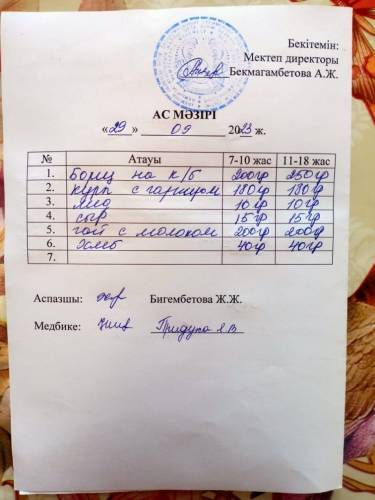 Бекітемін:
Мектеп директоры
Бекмагамбетова А.Ж.
АС МӘЗІРІ
«29» 09 2023 ж.
№ Атауы 7-10 жас 11-18 жас
1. Борщ на к/б 200гр 250гр
2. с гарниром 180гр 180гр
3. 10гр 10гр
4. сыр 15гр 15гр
5. чай с молоком 200гр 200гр
6. Хлеб 40гр 40гр
7.
Аспазшы: Бигембетова Ж.Ж.
Медбике: Придуха